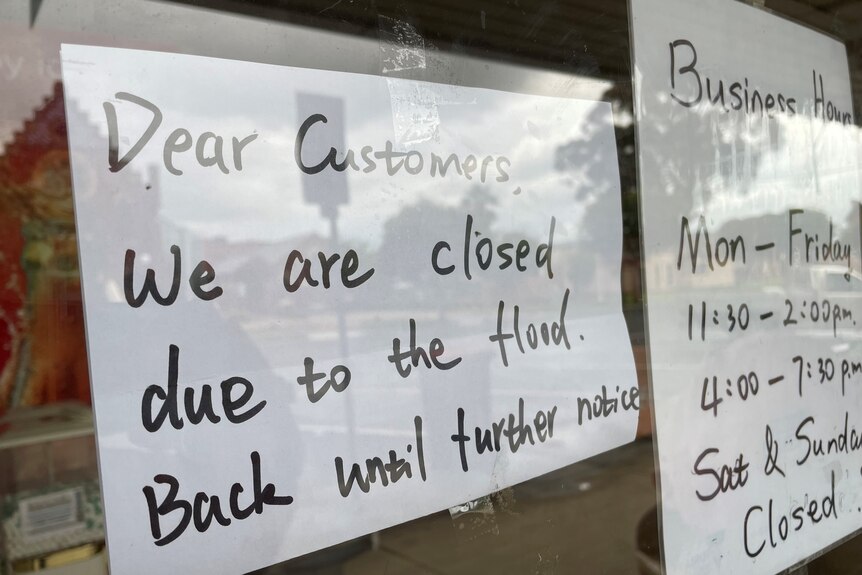 Dear Customers,
We are closed
due to the flood.
Back until further notice
Business Hours
Mon - Friday
11:30 - 2:00pm.
4:00 - 7:30 pm
Sat & Sunday
Closed.